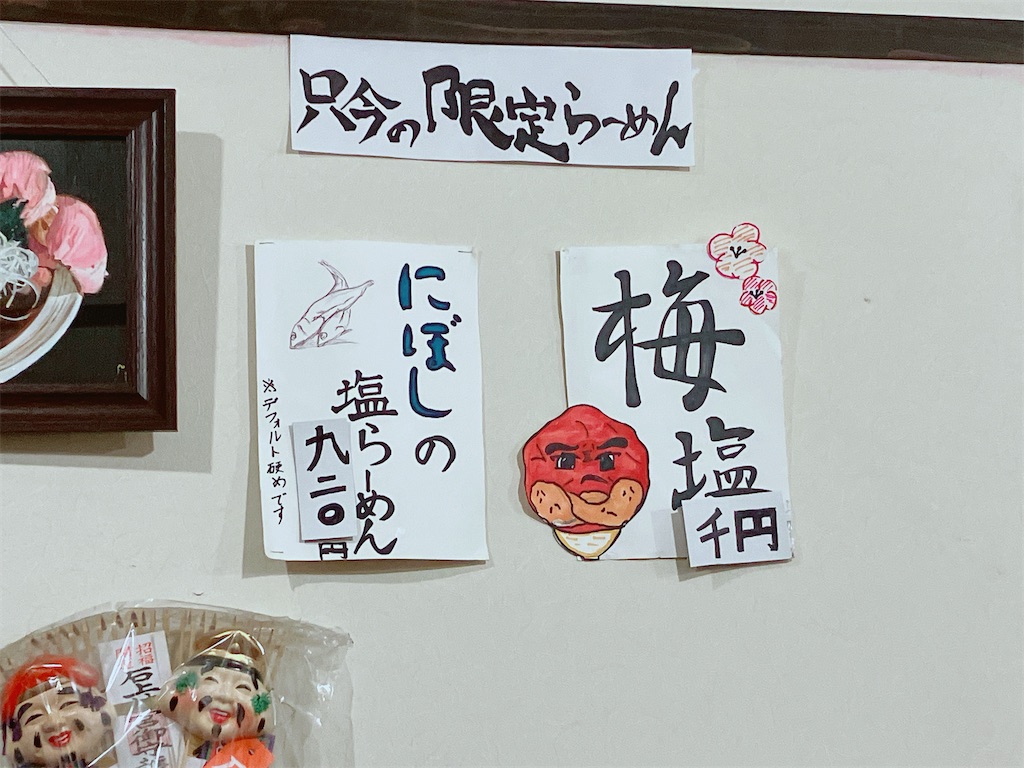 只今の限定らーめん
梅
塩
千円
にぼしの
塩らーめん
九二〇
円
※デフォルト硬めです
招福